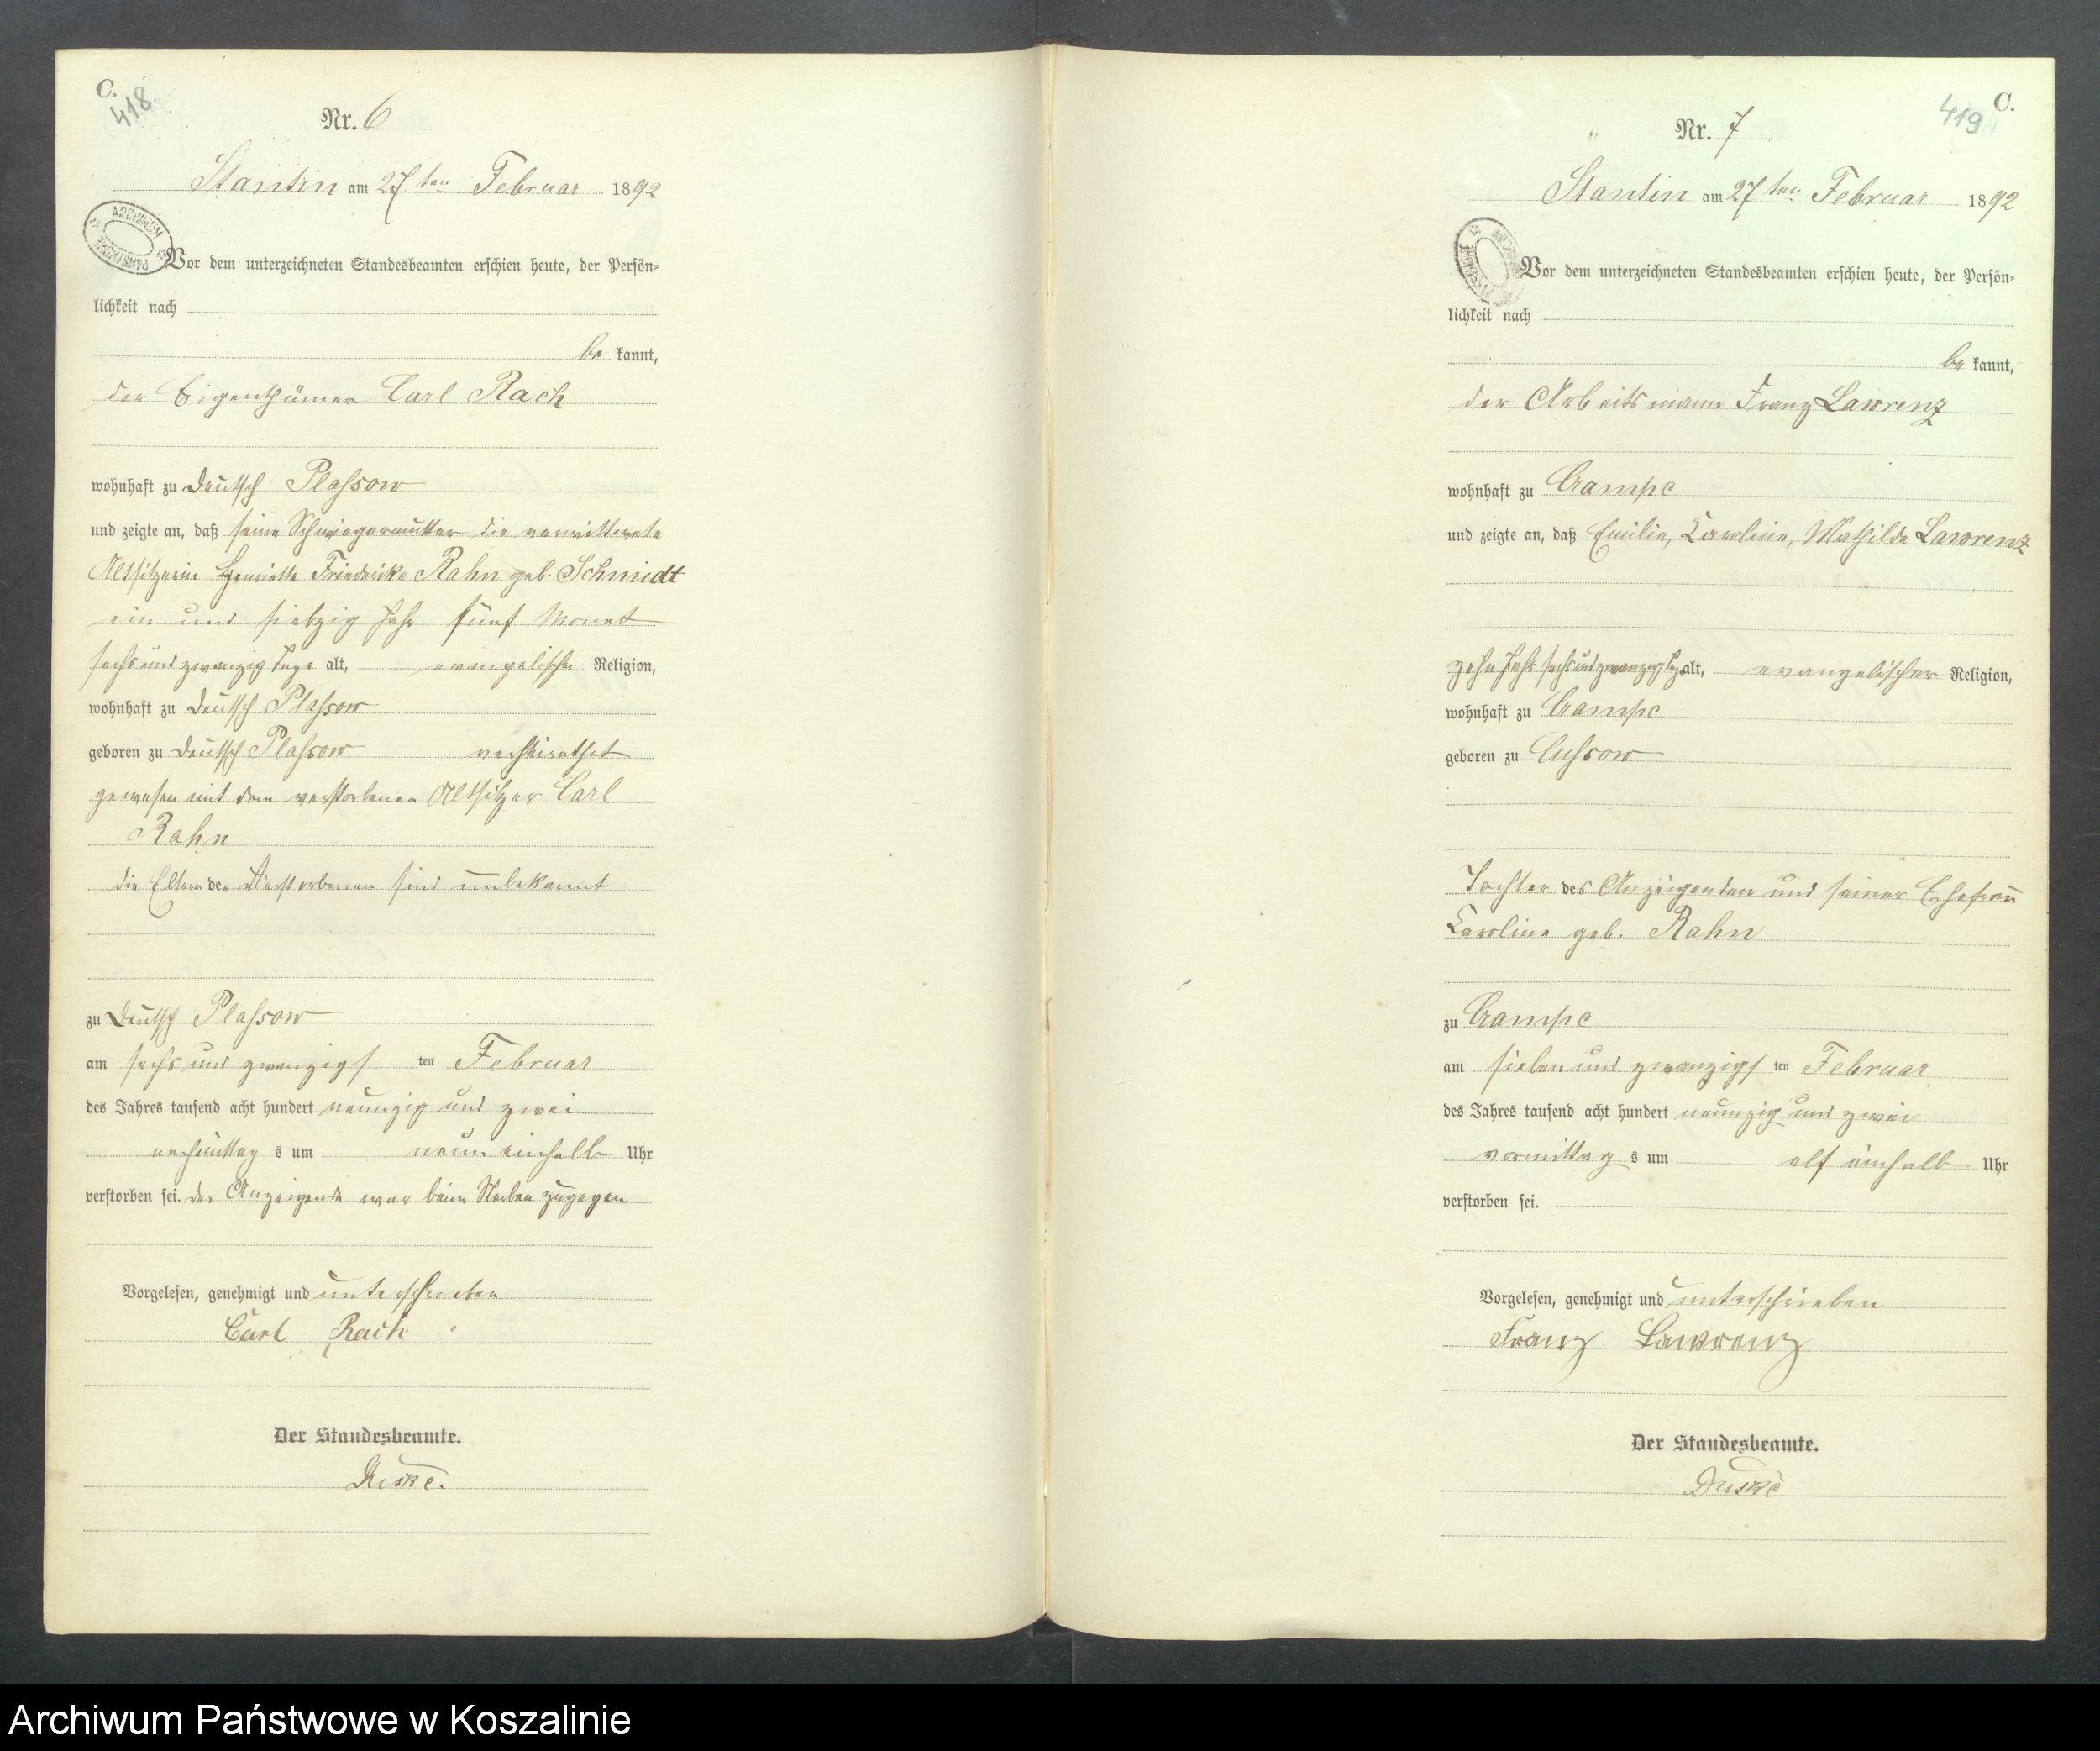 C.
418.
Nr. 6
Stantin am 27 ten Februar 1892
ARCHIWUM PAŃSTWOWE
Vor dem unterzeichneten Standesbeamten erschien heute, der Persön-
lichkeit nach
be kannt,
der Eigenthümer Carl Rach
wohnhaft zu Deutsch Plassow
und zeigte an, daß seine Schwiegermutter die verwittwete
Altsitzerin Henriette Friederike Rahn geb. Schmidt
ein und siebzig Jahr fünf Monat
sechs und zwanzig Tage alt, evangelischer Religion,
wohnhaft zu Deutsch Plassow
geboren zu Deutsch Plassow verheirathet
gewesen mit dem verstorbenen Altsitzer Carl
Rahn
die Eltern der Verstorbenen sind unbekannt
zu Deutsch Plassow
am sechs und zwanzigs ten Februar
des Jahres tausend acht hundert neunzig und zwei
nachmittag s um neun einhalb Uhr
verstorben sei. der Anzeigende war beim Sterben zugegen
Vorgelesen, genehmigt und unterschrieben
Carl Rach
Der Standesbeamte.
C.
419
Nr. 7
Stantin am 27 ten Februar 1892
Vor dem unterzeichneten Standesbeamten erschien heute, der Persön-
lichkeit nach
be kannt,
der Arbeitsmann Franz Lawrenz
wohnhaft zu Crampe
und zeigte an, daß Emilie, Karoline, Mathilde Lawrenz
zehn Jahr sechs und zwanzig Tg alt, evangelischer Religion,
wohnhaft zu Crampe
geboren zu Cussow
Tochter des Anzeigenden und seiner Ehefrau
Karoline geb. Rahn
zu Crampe
am sieben und zwanzigs ten Februar
des Jahres tausend acht hundert neunzig und zwei
vormittag s um elf einhalb Uhr
verstorben sei.
Vorgelesen, genehmigt und unterschrieben
Franz Lawrenz
Der Standesbeamte.
Archiwum Państwowe w Koszalinie